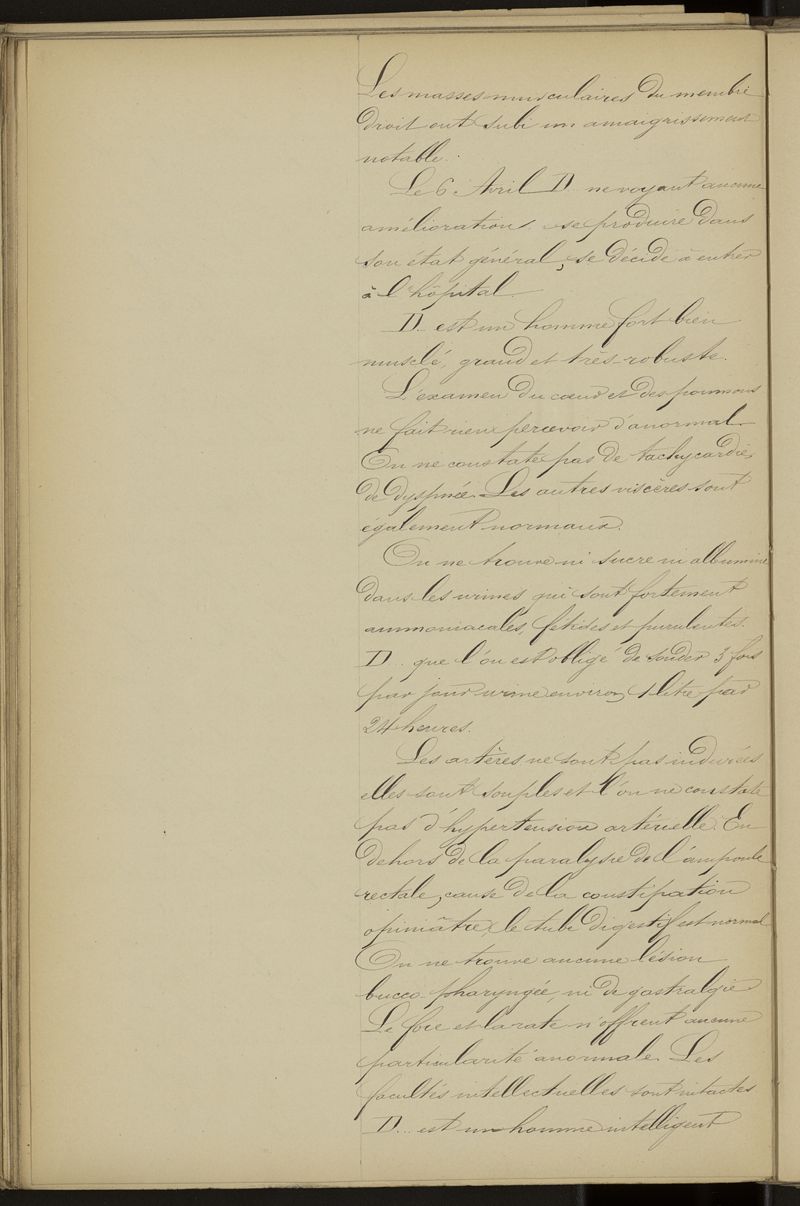 Les masses musculaires du membre
droit ont subi un amaigrissement
notable.
Le 6 Avril D. ne voyant aucune
amélioration se produire dans
son état général, se décide à entrer
à l'hôpital.
D... est un homme fort bien
musclé, grand et très-robuste.
L'examen du cœur et des poumons
ne fait rien percevoir d'anormal.
On ne constate pas de tachycardie,
de dyspnée. Les autres viscères sont
également normaux.
On ne trouve ni sucre ni albumine
dans les urines qui sont fortement
ammoniacales, fétides et purulentes.
D... que l'on est obligé de sonder 3 fois
par jour urine environ 1 litre par
24 heures.
Les artères ne sont pas indurées
elles sont souples et l'on ne constate
pas d'hypertension artérielle. En
dehors de la paralysie de l'ampoule
rectale, cause de la constipation
opiniâtre, le tube digestif est normal
On ne trouve aucune lésion
bucco-pharyngée, ni de gastralgie
Le foie et la rate n'offrent aucune
particularité anormale. Les
facultés intellectuelles sont intactes
D... est un homme intelligent